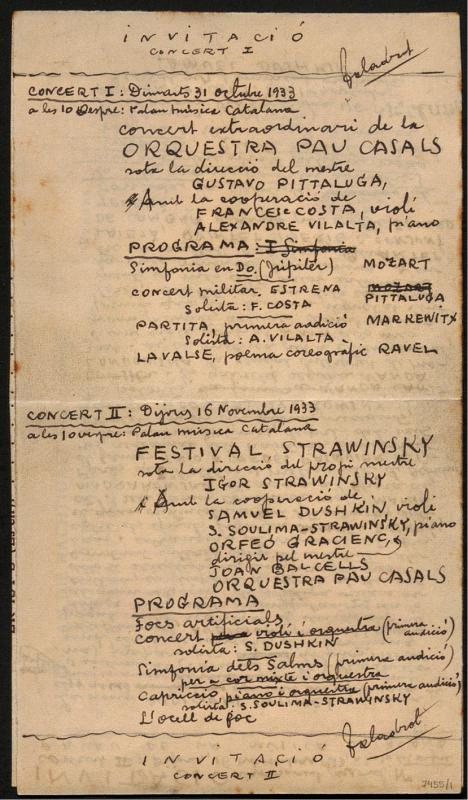 INVITACIÓ
CONCERT I
CONCERT I: Dimarts 31 octubre 1933
a les 10 vespre: Palau música Catalana
concert extraordinari de la
ORQUESTRA PAU CASALS
sota la direcció del mestre
GUSTAVO PITTALUGA,
Amb la cooperació de
FRANCESC COSTA, violí
ALEXANDRE VILALTA, piano
PROGRAMA: I Simfonia
Simfonia en Do. (Júpiter) MOZART
concert militar. ESTRENA MOZART PITTALUGA
solista: F. COSTA
PARTITA, primera audició MARKEWITX
solista: A. VILALTA
LA VALSE, poema coreogràfic RAVEL
CONCERT II: Dijous 16 Novembre 1933
a les 10 vespre: Palau música Catalana
FESTIVAL STRAWINSKY
sota la direcció del propi mestre
IGOR STRAWINSKY
Amb la cooperació de
SAMUEL DUSHKIN violí
S. SOULIMA-STRAWINSKY, piano
ORFEÓ GRACIENC,
dirigit pel mestre
JOAN BALCELLS
ORQUESTRA PAU CASALS
PROGRAMA
Focs artificials
Concert violí i orquestra (primera audició)
solista: S. DUSHKIN
Simfonia dels Salms (primera audició)
per a cor mixte i orquestra
Capriccio, piano i orquestra (primera audició)
solista: S. SOULIMA-STRAWINSKY
L'ocell de foc
INVITACIÓ
CONCERT II
7455/1